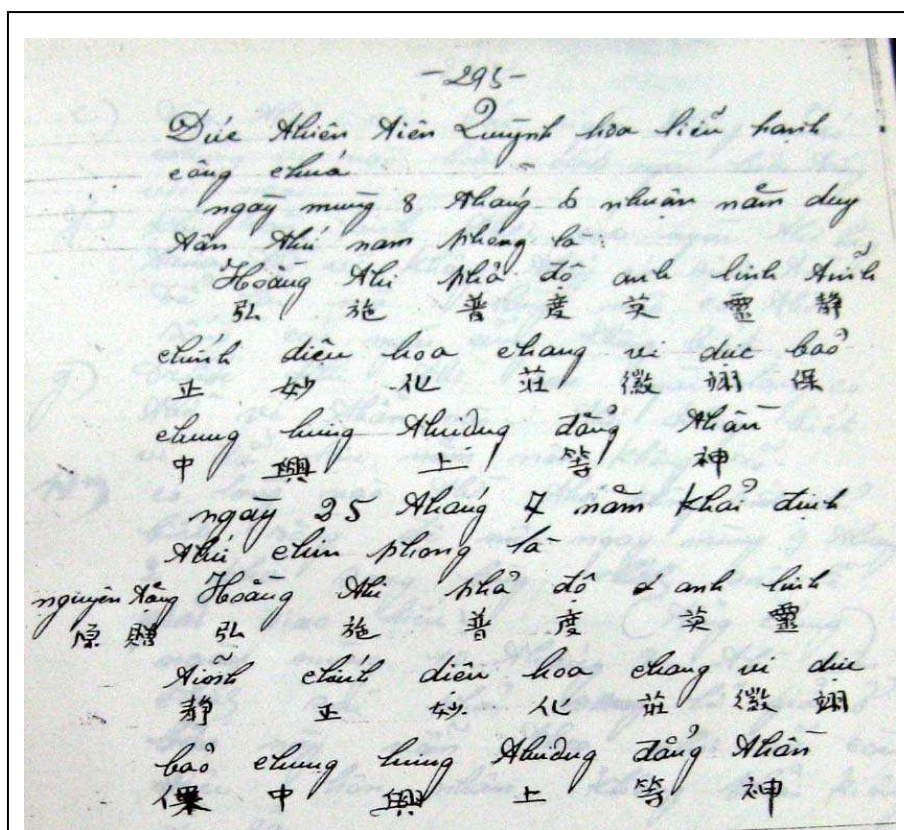 -295-
Đức thiên tiên Quỳnh hoa liễu hanh
công chúa
ngày mùng 8 tháng 6 nhuận năm duy
tân thứ nam phong là:
Hoằng thi phả độ anh linh tĩnh
弘 施 普 度 英 靈 靜
chính diệu hoa chang vi dực bảo
正 妙 化 莊 徽 翊 保
chung hưng thượng đẳng thần
中 興 上 等 神
ngày 25 tháng 7 năm khải định
thứ chin phong là
nguyên tặng Hoằng thi phả độ anh linh
原 贈 弘 施 普 度 英 靈
tĩnh chính diệu hoa chang vi dực
靜 正 妙 化 莊 徽 翊
bảo chung hưng thượng đẳng thần
保 中 興 上 等 神